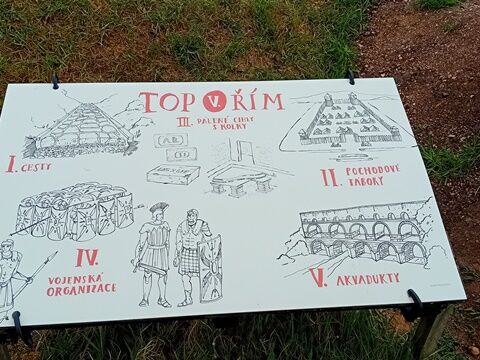 TOP V. ŘÍM
III. PÁLENÉ CIHLY
S KOLKY
I. CESTY
II. POCHODOVÉ
TÁBORY
IV.
VOJENSKÁ
ORGANIZACE
V. AKVADUKTY